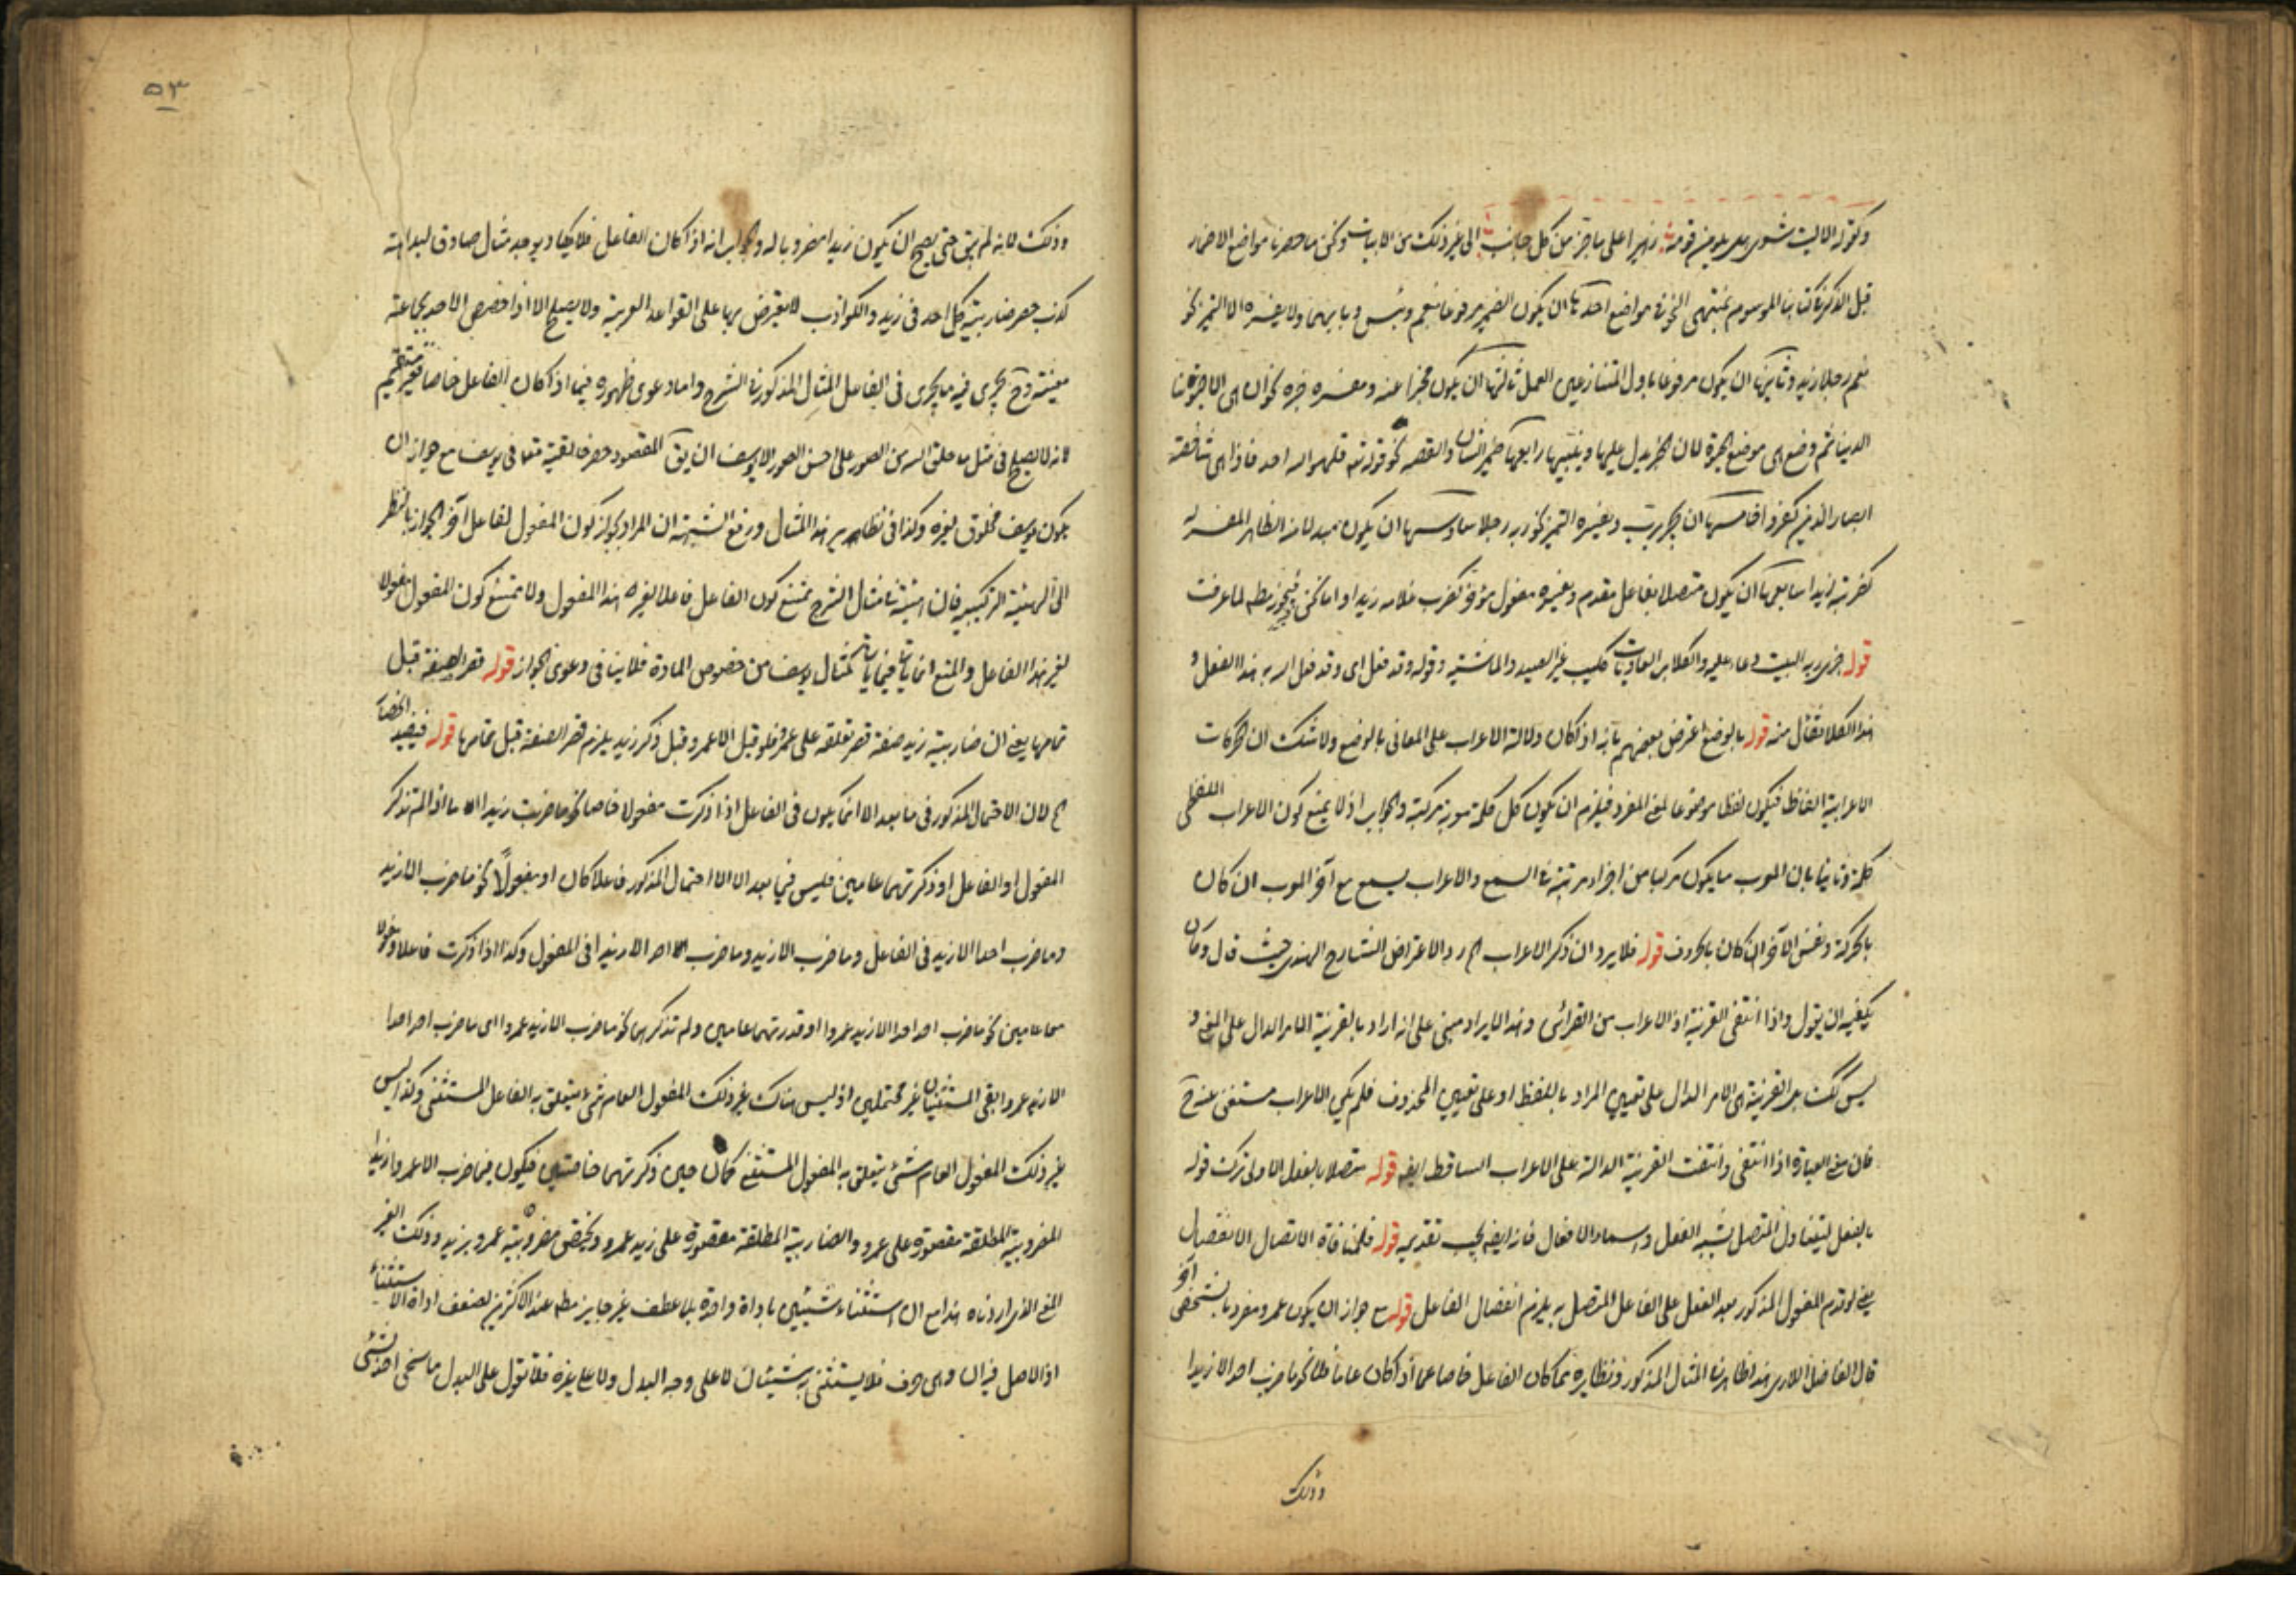 وكقوله الا ليت شعرى هل يلومن قومه زهيرا على ما جر من كل جانب الى غير ذلك من الابيات ولكن ما حصرنا مواضع الاضمار
قبل الذكر فى كتابنا الموسوم بمنتهى النحو فى مواضع احدها ان يكون الضمير مرفوعا بنعم وبئس وبابهما ولا يفسره الا التميز نحو
نعم رجلا زيد وثانيها ان يكون مرفوعا باول المتنازعين العمل ثالثها ان يكون مخبرا عنه ومفسره خبره نحو ان هى الا حيوتنا
الدنيا ثم وضع هى موضع الحيوة لان الخبر يدل عليها ويبينها رابعها ضمير الشان والقصه نحو قوله تعه قل هو الله احد فاذا هى شاخصة
ابصار الذين كفروا خامسها ان يجر برب ويفسره التميز نحو ربه رجلا سادسها ان يكون مبدلا منه الظاهر المفسر له
كضربته زيدا سابعها ان يكون متصلا بفاعل مقدم ويفسره مفعول مؤخر كضرب غلامه زيدا
قوله جزى ربه البيت دعاء عليه والكلاب العاويات كليب غير الصيد والماشية وقوله وقد فعل اى وقد فعل الله به هذا الفعل و
هذا الكلام تفأل منه قوله بالوضع اعترض بعضهم بانه اذا كان دلالة الاعراب على المعانى بالوضع ولا شك ان الحركات
الاعرابية الفاظ فيكون لفظا موضوعا لمعنى المفرد فيلزم ان يكون كل كلمة معربة مركبة والجواب اولا بمنع كون الاعراب اللفظى
كلمة وثانيا بان المعرب ما يكون مركبا من اجزاء مرتبة فى السمع والاعراب يسمع مع آخر المعرب ان كان
بالحركة ونفس الآخر ان كان بالحروف قوله فلا يرد ان ذكر الاعراب الخ رد الاعتراض الشارح الهندى حيث قال وكان
يكفيه ان يقول واذا انتفى القرينة اذ الاعراب من القرائن وهذا الايراد مبنى على انه اراد بالقرينة الامر الدال على المعنى و
ليس كك بل القرينة هى الامر الدال على تعيين المراد باللفظ او على تعيين المحذوف فلم يكن الاعراب مستغنى عنه ح
فان معنى العبارة اذا انتفى وانتفت القرينة الدالة على الاعراب الساقط ايضه قوله متصلا بالفعل الاولى ترك قوله
بالفعل ليتناول المتصل بشبه الفعل واسماء الافعال فانه ايضه يجب تقديمه قوله فلمنافاة الاتصال الانفصال
يعنى لو قدم المفعول المذكور بعد الفعل على الفاعل المتصل به يلزم انفصال الفاعل قوله مع جواز ان يكون عمرو مضروبا لشخص آخر
قال الفاضل اللارى هذا ظاهر فى المثال المذكور ونظايره مما كان الفاعل خاصا اما اذا كان عاما فلا نحو ما ضرب احد الا زيدا
وذلك
٥٣
وذلك لانه لم يبق حتى يصح ان يكون زيدا مضروبا له والجواب انه اذا كان الفاعل فلا يكاد يوجد مثال صادق لبداهة
كذب حصر ضاربية كل احد فى زيد والكواذب لا يعترض بها على القواعد العربية ولا يصلح الا اذا خصص الاحد بجماعة
معينة وح يجرى فيه ما يجرى فى الفاعل المثال المذكور فى الشرح واما دعوى ظهوره فيما اذا كان الفاعل خاصا فغير مستقيم
لانه لا يصلح فى مثل ما خلق الله من الصور على احسن الصور الا يوسف ان يق المقصود حصر خالقيته تعه فى يوسف مع جواز ان
يكون يوسف مخلوق لغيره وكذا فى نظاير هذا المثال ورفع الشبهة ان المراد بجواز كون المفعول لفاعل آخر الجواز بالنظر
الى الهيئة التركيبية فان الهيئة فى مثال الشرح تمتنع كون الفاعل فاعلا لغير هذا المفعول ولا تمتنع كون المفعول مفعولا
لغير هذا الفاعل والمنع انما يأتى فيما يأتى كمثال يوسف من خصوص المادة فلا ينافى دعوى الجواز قوله قصر الصفة قبل
تمامها يعنى ان ضاربية زيد صفة قصر تعلقه على عمرو فلو قيل الا عمرو قبل ذكر زيد يلزم قصر الصفة قبل تمامها قوله فيفيد انحصار
الخ لان الاحتمال المذكور فى ما بعد الا انما يكون فى الفاعل اذا ذكرت مفعولا خاصا نحو ما ضربت زيدا الا ما اذا لم تذكر
المفعول او الفاعل او ذكرتهما عامين فليس فيما بعد الا الاحتمال المذكور فاعلا كان او مفعولا نحو ما ضرب الا زيد
وما ضرب احدا الا زيد فى الفاعل وما ضرب الا زيد وما ضرب احد الا زيدا فى المفعول وكذا اذا ذكرت فاعلا ومفعولا
معا عامين نحو ما ضرب احد احدا الا زيد عمروا او قدرتهما عامين ولم تذكرهما نحو ما ضرب الا زيد عمروا اى ما ضرب احد احدا
الا زيد عمروا بقى المستثنيان غير محتملين اذ ليس هناك غير ذلك المفعول العام شئ يتعلق به الفاعل المستثنى وكذا ليس
غير ذلك المفعول العام شئ يتعلق به المفعول المستثنى كما كان حين ذكرتهما خاصتين فيكون فيما ضرب الا عمروا زيدا
المضروبية المطلقة مقصورة على عمرو والضاربية المطلقة مقصورة على زيد عمرو ويختص مضروبية عمرو بزيد وذلك الغير
المعنى الذى اردناه هذا مع ان استثناء شيئين باداة واحدة بلا عطف غير جايز مطه عند الاكثرين لضعف اداة الاستثناء
اذ الاصل فيه الا وهى حرف فلا يستثنى به شيئان لا على وجه البدل ولا على غيره فلا تقول على البدل ما سخى احد بشئ